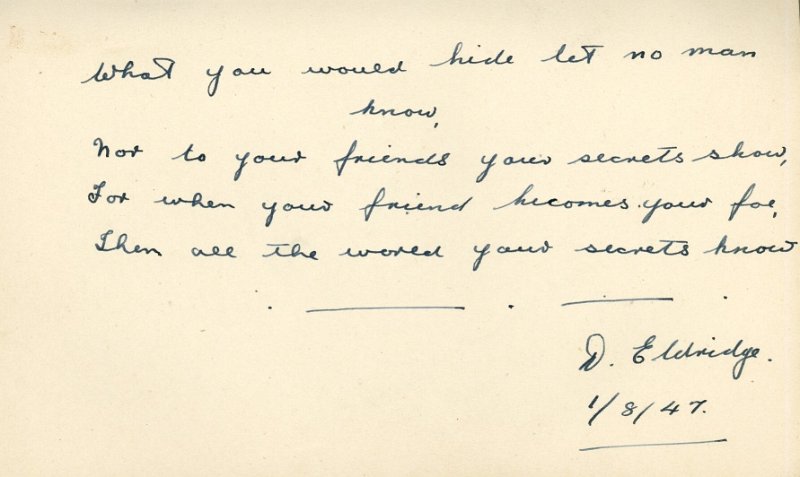 What you would hide let no man
know,
Nor to your friends your secrets show,
For when your friend becomes your foe,
Then all the world your secrets know
D. Eldridge.
1/8/47.